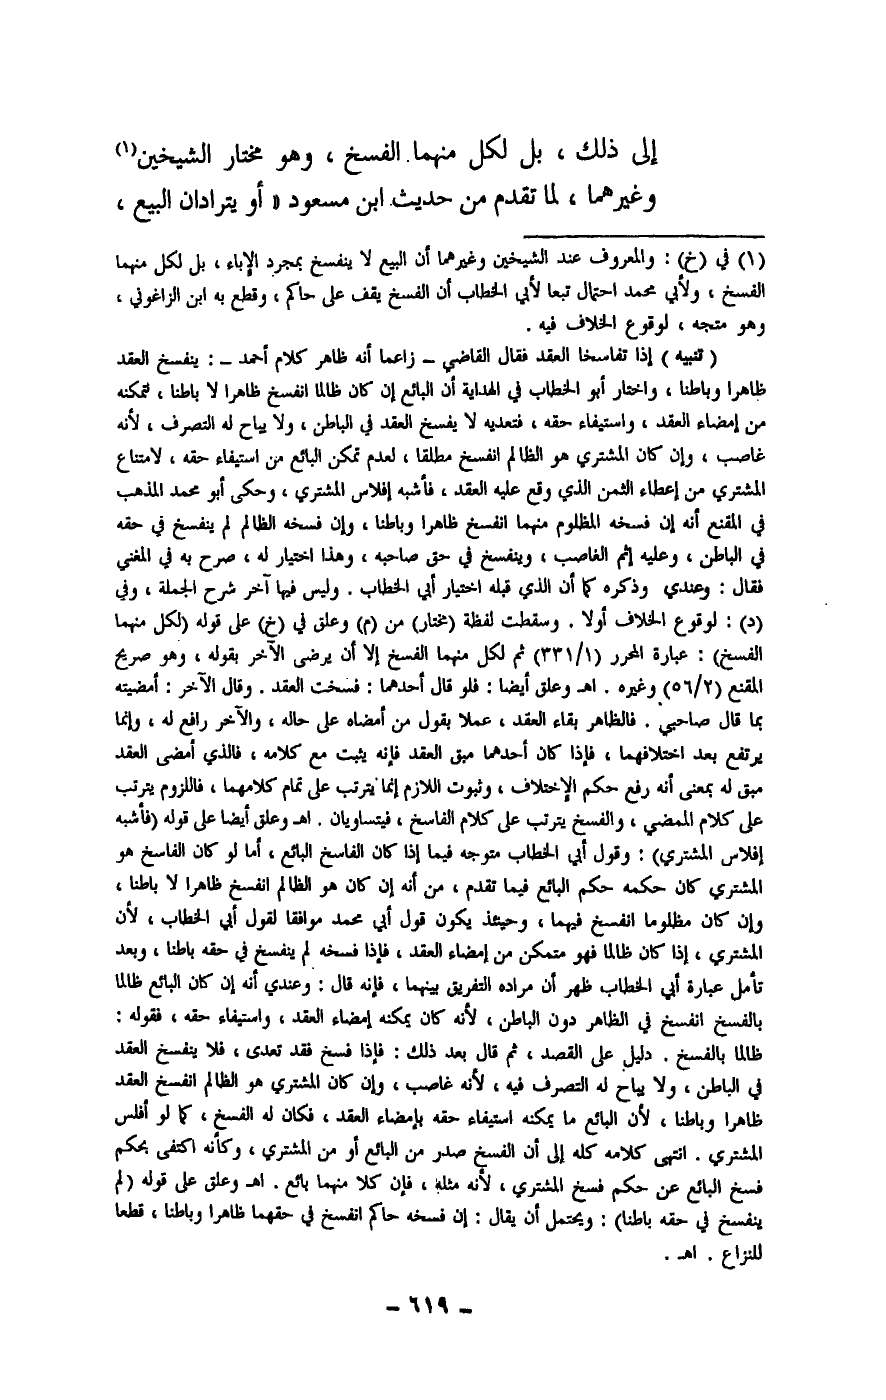 إلى ذلك ، بل لكل منهما الفسخ ، وهو مختار الشيخين(١)
وغيرهما ، لما تقدم من حديث ابن مسعود « أو يترادان البيع ،
(١) في (خ) : والمعروف عند الشيخين وغيرهما أن البيع لا ينفسخ بمجرد الإباء ، بل لكل منهما
الفسخ ، ولأبي محمد احتمال تبعا لأبي الخطاب أن الفسخ يقف على حاكم ، وقطع به ابن الزاغوني ،
وهو متجه ، لوقوع الخلاف فيه .
( تنبيه ) إذا تفاسخا العقد فقال القاضي – زاعما أنه ظاهر كلام أحمد – : ينفسخ العقد
ظاهرا وباطنا ، واختار أبو الخطاب في الهداية أن البائع إن كان ظالما انفسخ ظاهرا لا باطنا ، لتمكنه
من إمضاء العقد ، واستيفاء حقه ، فتعديه لا يفسخ العقد في الباطن ، ولا يباح له التصرف ، لأنه
غاصب ، وإن كان المشتري هو الظالم انفسخ مطلقا ، لعدم تمكن البائع من استيفاء حقه ، لامتناع
المشتري من إعطاء الثمن الذي وقع عليه العقد ، فأشبه إفلاس المشتري ، وحكى أبو محمد المذهب
في المقنع أنه إن فسخه المظلوم منهما انفسخ ظاهرا وباطنا ، وإن فسخه الظالم لم ينفسخ في حقه
في الباطن ، وعليه إثم الغاصب ، وينفسخ في حق صاحبه ، وهذا اختيار له ، صرح به في المغني
فقال : وعندي وذكره كما أن الذي قبله اختيار أبي الخطاب . وليس فيها آخر شرح الجملة ، وفي
(د) : لوقوع الخلاف أولا . وسقطت لفظة (مختار) من (م) وعلق في (خ) على قوله (لكل منهما
الفسخ) : عبارة المحرر (٣٣١/١) ثم لكل منهما الفسخ إلا أن يرضى الآخر بقوله ، وهو صريح
المقنع (٥٦/٢) وغيره . اهـ وعلق أيضا : فلو قال أحدهما : فسخت العقد . وقال الآخر : أمضيته
بما قال صاحبي . فالظاهر بقاء العقد ، عملا بقول من أمضاه على حاله ، والآخر رافع له ، وإنما
يرتفع بعد اختلافهما ، فإذا كان أحدهما مبق العقد فإنه يثبت مع كلامه ، فالذي أمضى العقد
مبق له بمعنى أنه رفع حكم الإختلاف ، وثبوت اللازم إنما يترتب على تمام كلامهما ، فاللزوم يترتب
على كلام الممضي ، والفسخ يترتب على كلام الفاسخ ، فيتساويان . اهـ وعلق أيضا على قوله (فأشبه
إفلاس المشتري) : وقول أبي الخطاب متوجه فيما إذا كان الفاسخ البائع ، أما لو كان الفاسخ هو
المشتري كان حكمه حكم البائع فيما تقدم ، من أنه إن كان هو الظالم انفسخ ظاهرا لا باطنا ،
وإن كان مظلوما انفسخ فيهما ، وحينئذ يكون قول أبي محمد موافقا لقول أبي الخطاب ، لأن
المشتري ، إذا كان ظالما فهو متمكن من إمضاء العقد ، فإذا فسخه لم ينفسخ في حقه باطنا ، وبعد
تأمل عبارة أبي الخطاب ظهر أن مراده التفريق بينهما ، فإنه قال : وعندي أنه إن كان البائع ظالما
بالفسخ انفسخ في الظاهر دون الباطن ، لأنه كان يمكنه إمضاء العقد ، واستيفاء حقه ، فقوله :
ظالما بالفسخ . دليل على القصد ، ثم قال بعد ذلك : فإذا فسخ فقد تعدى ، فلا ينفسخ العقد
في الباطن ، ولا يباح له التصرف فيه ، لأنه غاصب ، وإن كان المشتري هو الظالم انفسخ العقد
ظاهرا وباطنا ، لأن البائع ما يمكنه استيفاء حقه بإمضاء العقد ، فكان له الفسخ ، كما لو أفلس
المشتري . انتهى كلامه كله إلى أن الفسخ صدر من البائع أو من المشتري ، وكأنه اكتفى بحكم
فسخ البائع عن حكم فسخ المشتري ، لأنه مثله ، فإن كلا منهما بائع . اهـ وعلق على قوله (لم
ينفسخ في حقه باطنا) : ويحتمل أن يقال : إن فسخه حاكم انفسخ في حقهما ظاهرا وباطنا ، قطعا
للنزاع . اهـ .
– ٦١٩ –